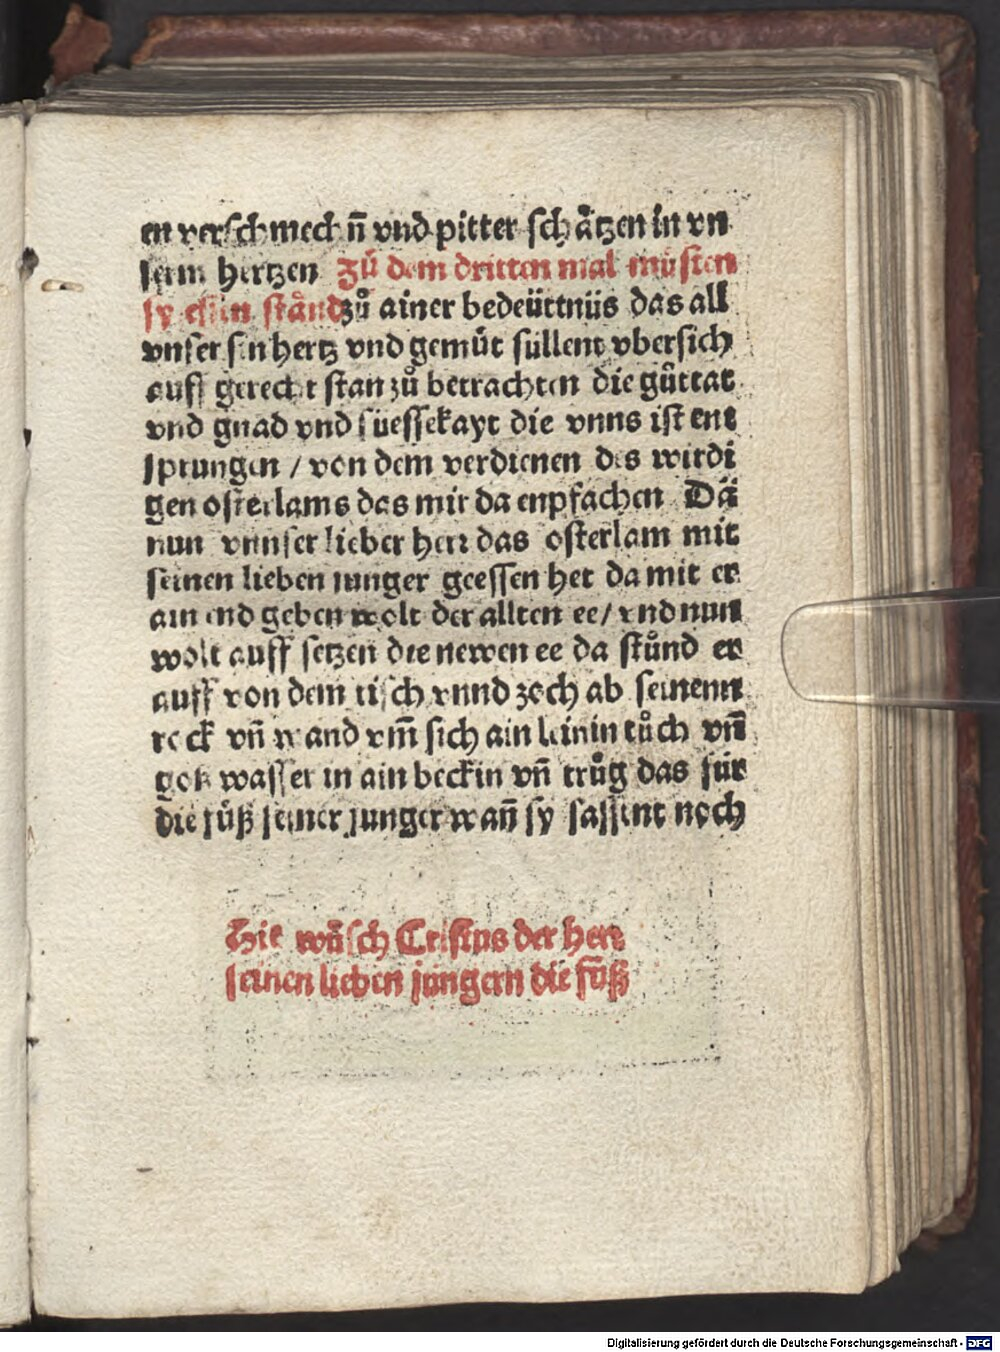 en verschmechñ vnd pitter schåtzen in vn
serm hertzen Zů dem dritten mal můsten
sy essen ståndzů ainer bedeüttnüs das all
vnser sin hertz vnd gemüt süllent vbersich
auff gerecht stan zů betrachten die güttat
vnd gnad vnd süessekayt die vnns ist ent
sprungen / von dem verdienen des wirdi
gen osterlams das mir da enpfachen Dä
nun vnnser lieber herr das osterlam mit
seinen lieben iunger geessen het da mit er
ain end geben wolt der allten ee / vnd nun
wolt auff setzen die newen ee da stůnd er
auff von dem tisch vnnd zoch ab seinenn
rock vñ wand vm̃ sich ain leinin tůch vñ
goß wasser in ain beckin vñ trůg das für
die füß seiner junger wañ sy sassent noch
Hie wůsch Cristus der herr
seinen lieben jungern die füß
Digitalisierung gefördert durch die Deutsche Forschungsgemeinschaft - DFG